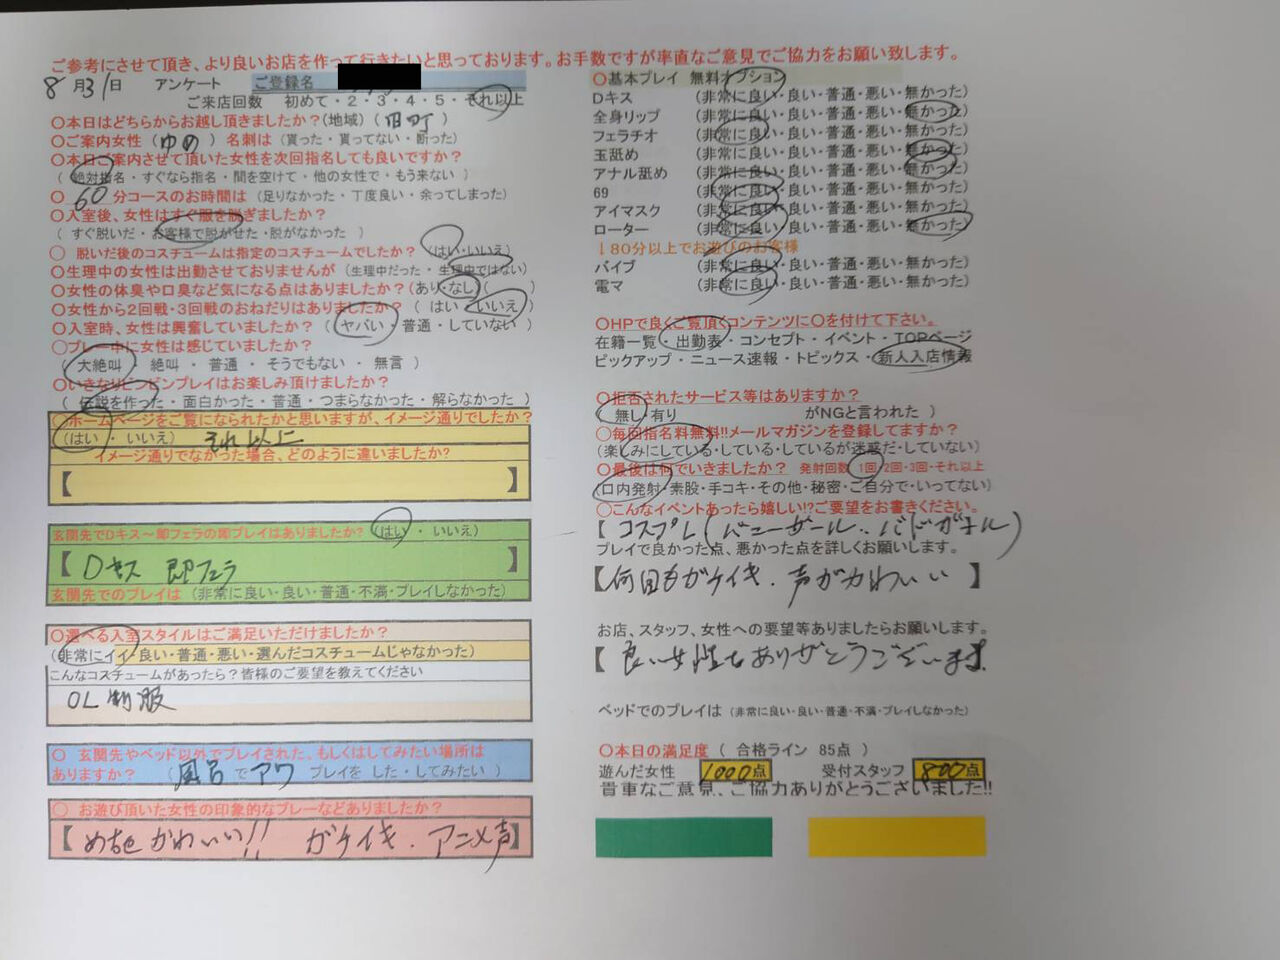 ご参考にさせて頂き、より良いお店を作って行きたいと思っております。お手数ですが率直なご意見でご協力をお願い致します。
8月31日 アンケート ご登録名
ご来店回数 初めて・2・3・4・5・それ以上
〇本日はどちらからお越し頂きましたか?(地域)( 町 )
〇ご案内女性 (ゆめ) 名刺は (貰った・貰ってない・断った)
〇本日ご案内させて頂いた女性を次回指名しても良いですか?
( 絶対指名・すぐなら指名・間を空けて・他の女性で・もう来ない )
〇 60分コースのお時間は (足りなかった・丁度良い・余ってしまった)
〇入室後、女性はすぐ服を脱ぎましたか?
( すぐ脱いだ・お客様で脱がせた・脱がなかった )
〇 脱いだ後のコスチュームは指定のコスチュームでしたか? (はい・いいえ)
〇生理中の女性は出勤させておりませんが (生理中だった・生理中ではない)
〇女性の体臭や口臭など気になる点はありましたか?(あり・なし( )
〇女性から2回戦・3回戦のおねだりはありましたか? ( はい・いいえ )
〇入室時、女性は興奮していましたか? ( ヤバい・普通・していない )
〇プレー中に女性は感じていましたか?
( 大絶叫・絶叫・普通・そうでもない・無言 )
〇いきなりビンビンプレイはお楽しみ頂けましたか?
( 伝説を作った・面白かった・普通・つまらなかった・解らなかった )
〇ホームページをご覧になられたかと思いますが、イメージ通りでしたか?
(はい・いいえ) それ以上に
イメージ通りでなかった場合、どのように違いましたか?
【 】
玄関先でDキス～即フェラの即プレイはありましたか? (はい・いいえ)
【 Dキス 即フェラ 】
玄関先でのプレイは (非常に良い・良い・普通・不満・プレイしなかった)
〇選べる入室スタイルはご満足いただけましたか?
(非常にイイ・良い・普通・悪い・選んだコスチュームじゃなかった)
こんなコスチュームがあったら?皆様のご要望を教えてください
OL制服
〇 玄関先やベッド以外でプレイされた、もしくはしてみたい場所は
ありますか? (風呂でアワ プレイを した・してみたい )
〇 お遊び頂いた女性の印象的なプレーなどありましたか?
【 めちゃかわいい!! ガチイキ. アニメ声】
〇基本プレイ 無料オプション
Dキス (非常に良い・良い・普通・悪い・無かった)
全身リップ (非常に良い・良い・普通・悪い・無かった)
フェラチオ (非常に良い・良い・普通・悪い・無かった)
玉舐め (非常に良い・良い・普通・悪い・無かった)
アナル舐め (非常に良い・良い・普通・悪い・無かった)
69 (非常に良い・良い・普通・悪い・無かった)
アイマスク (非常に良い・良い・普通・悪い・無かった)
ローター (非常に良い・良い・普通・悪い・無かった)
↓80分以上でお遊びのお客様
バイブ (非常に良い・良い・普通・悪い・無かった)
電マ (非常に良い・良い・普通・悪い・無かった)
〇HPで良くご覧頂くコンテンツに〇を付けて下さい。
在籍一覧・出勤表・コンセプト・イベント・TOPページ
ピックアップ・ニュース速報・トピックス・新人入店情報
〇拒否されたサービス等はありますか?
( 無し・有り がNGと言われた )
〇毎回指名料無料!!メールマガジンを登録してますか?
(楽しみにしている・している・しているが迷惑だ・していない)
〇最後は何でいきましたか? 発射回数 1回・2回・3回・それ以上
(口内発射・素股・手コキ・その他・秘密・ご自分で・いってない)
〇こんなイベントあったら嬉しい!?ご要望をお書きください。
【 コスプレ(バニーガール..バドガール)
プレイで良かった点、悪かった点を詳しくお願いします。
【何回もガチイキ. 声がかわいい 】
お店、スタッフ、女性への要望等ありましたらお願いします。
【 良い女性をありがとうございます】
ベッドでのプレイは (非常に良い・良い・普通・不満・プレイしなかった)
〇本日の満足度 ( 合格ライン 85点 )
遊んだ女性 1000点 受付スタッフ 800点
貴重なご意見、ご協力ありがとうございました!!